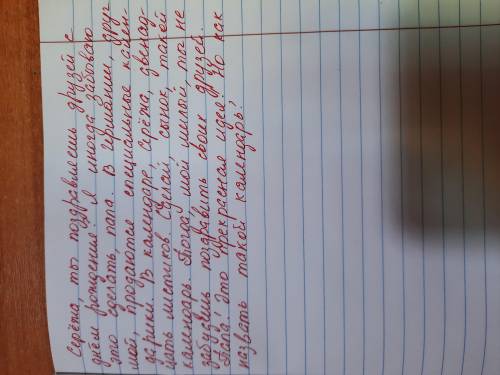 Серёжа, ты поздравляешь друзей с
днём рождения? Я иногда забываю
это сделать, папа. В Германии, друг
мой, продаются специальные кален-
дарики. В календаре, Серёжа, двенад-
цать листиков. Сделай, сынок, такой
календарь. Тогда, мой милый, ты не
забудешь поздравить своих друзей.
Папа! Это прекрасная идея! Но как
назвать такой календарь?